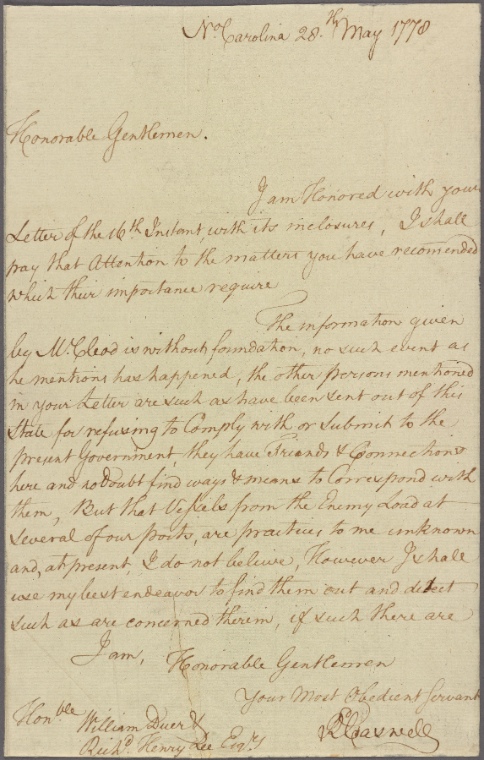 No. Carolina 28.th May 1778
Honorable Gentlemen.
I am Honored with your
Letter of the 16th Instant, with its inclosures, I shall
pay that Attention to the matters you have recomended
which their importance require
The information given
by Mc.Cleod is without foundation, no such event as
he mentions has happened, the other persons mentioned
in your Letter are such as have been sent out of this
State for refusing to Comply with or submit to the
present Government, they have Friends & Connections
here and no doubt find ways & means to Correspond with
them, But that Vessels from the Enemy Load at
several of our ports, are practices to me unknown
and, at present, I do not believe, However I shall
use my best endeavor to find them out and detect
such as are concerned therein, if such there are
I am, Honorable Gentlemen
Your Most Obedient Servant
Honble William Duer &
Richd. Henry Lee Esqrs
Rd Caswell